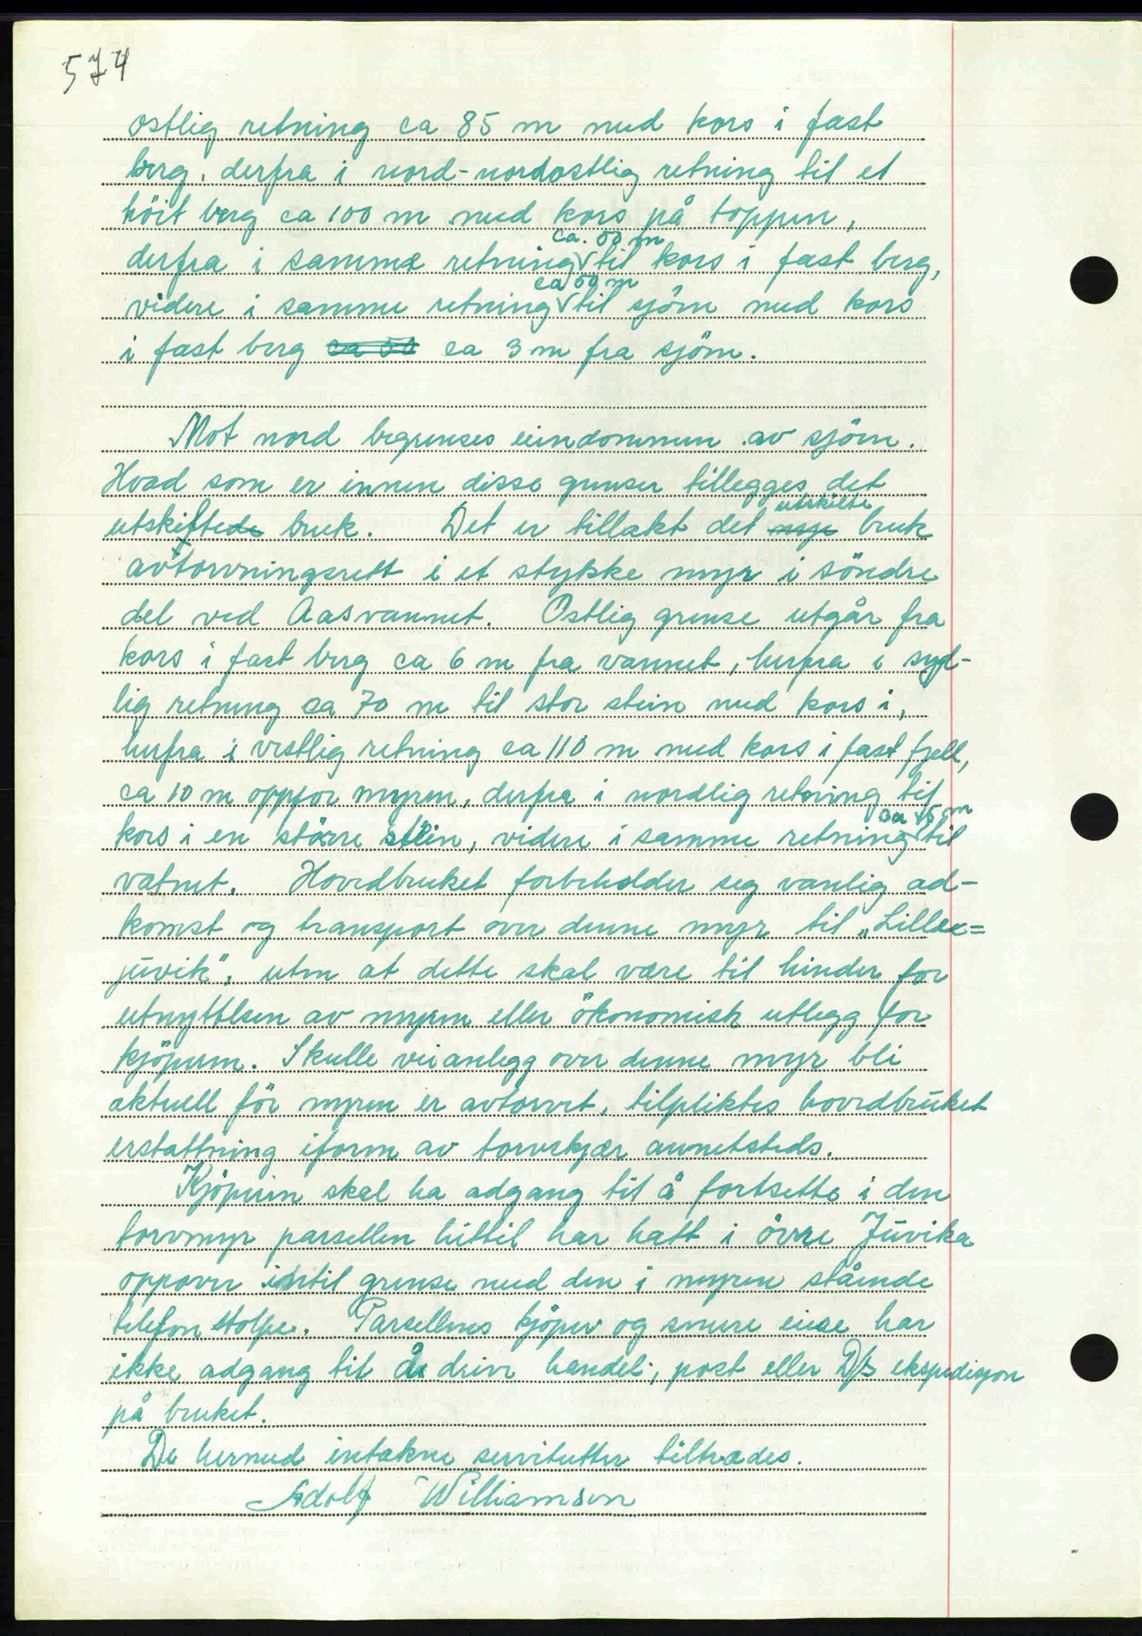 574
ostlig retning ca 85 m med kors i fast
berg, derfra i nord-nordostlig retning til et
höit berg ca 100 m med kors på toppen,
derfra i samme retning ca. 50 m til kors i fast berg,
videre i samme retning ca 50 m til sjöen med kors
i fast berg ca 50 ca 3 m fra sjöen.
Mot nord begrenses eiendommen av sjöen.
Hvad som er innen disse grenser tillegges det
utskiftede bruk. Det er tillakt det nye utskilte bruk
avtorvningsrett i et stykke myr i söndre
del ved Aasvannet. Ostlig grense utgår fra
kors i fast berg ca 6 m fra vannet, herfra i syd-
lig retning ca 70 m til stor stein med kors i,
herfra i vestlig retning ca 110 m med kors i fast fjell,
ca 10 m oppfor myren, derfra i nordlig retning til
kors i en större stein, videre i samme retning ca 15 m til
vatnet. Hovedbruket forbeholder seg vanlig ad-
komst og transport over denne myr til „Lille=
juvik", uten at dette skal være til hinder for
utnyttelsen av myren eller ökonomisk utlegg for
kjöperen. Skulle veianlegg over denne myr bli
aktuell för myren er avtorvet, tilpliktes hovedbruket
erstattning iform av torvskjær annetsteds.
Kjöperen skal ha adgang til å fortsette i den
torvmyr parsellen hittil har hatt i övre Juvika
oppover intil grense med den i myren stående
telefon stolpe. Parsellens kjöper og senere eiese har
ikke adgang til å drive handel, post eller D/S ekspedisjon
på bruket.
De hermed inntakne servitutter tiltrædes.
Adolf Williamsen